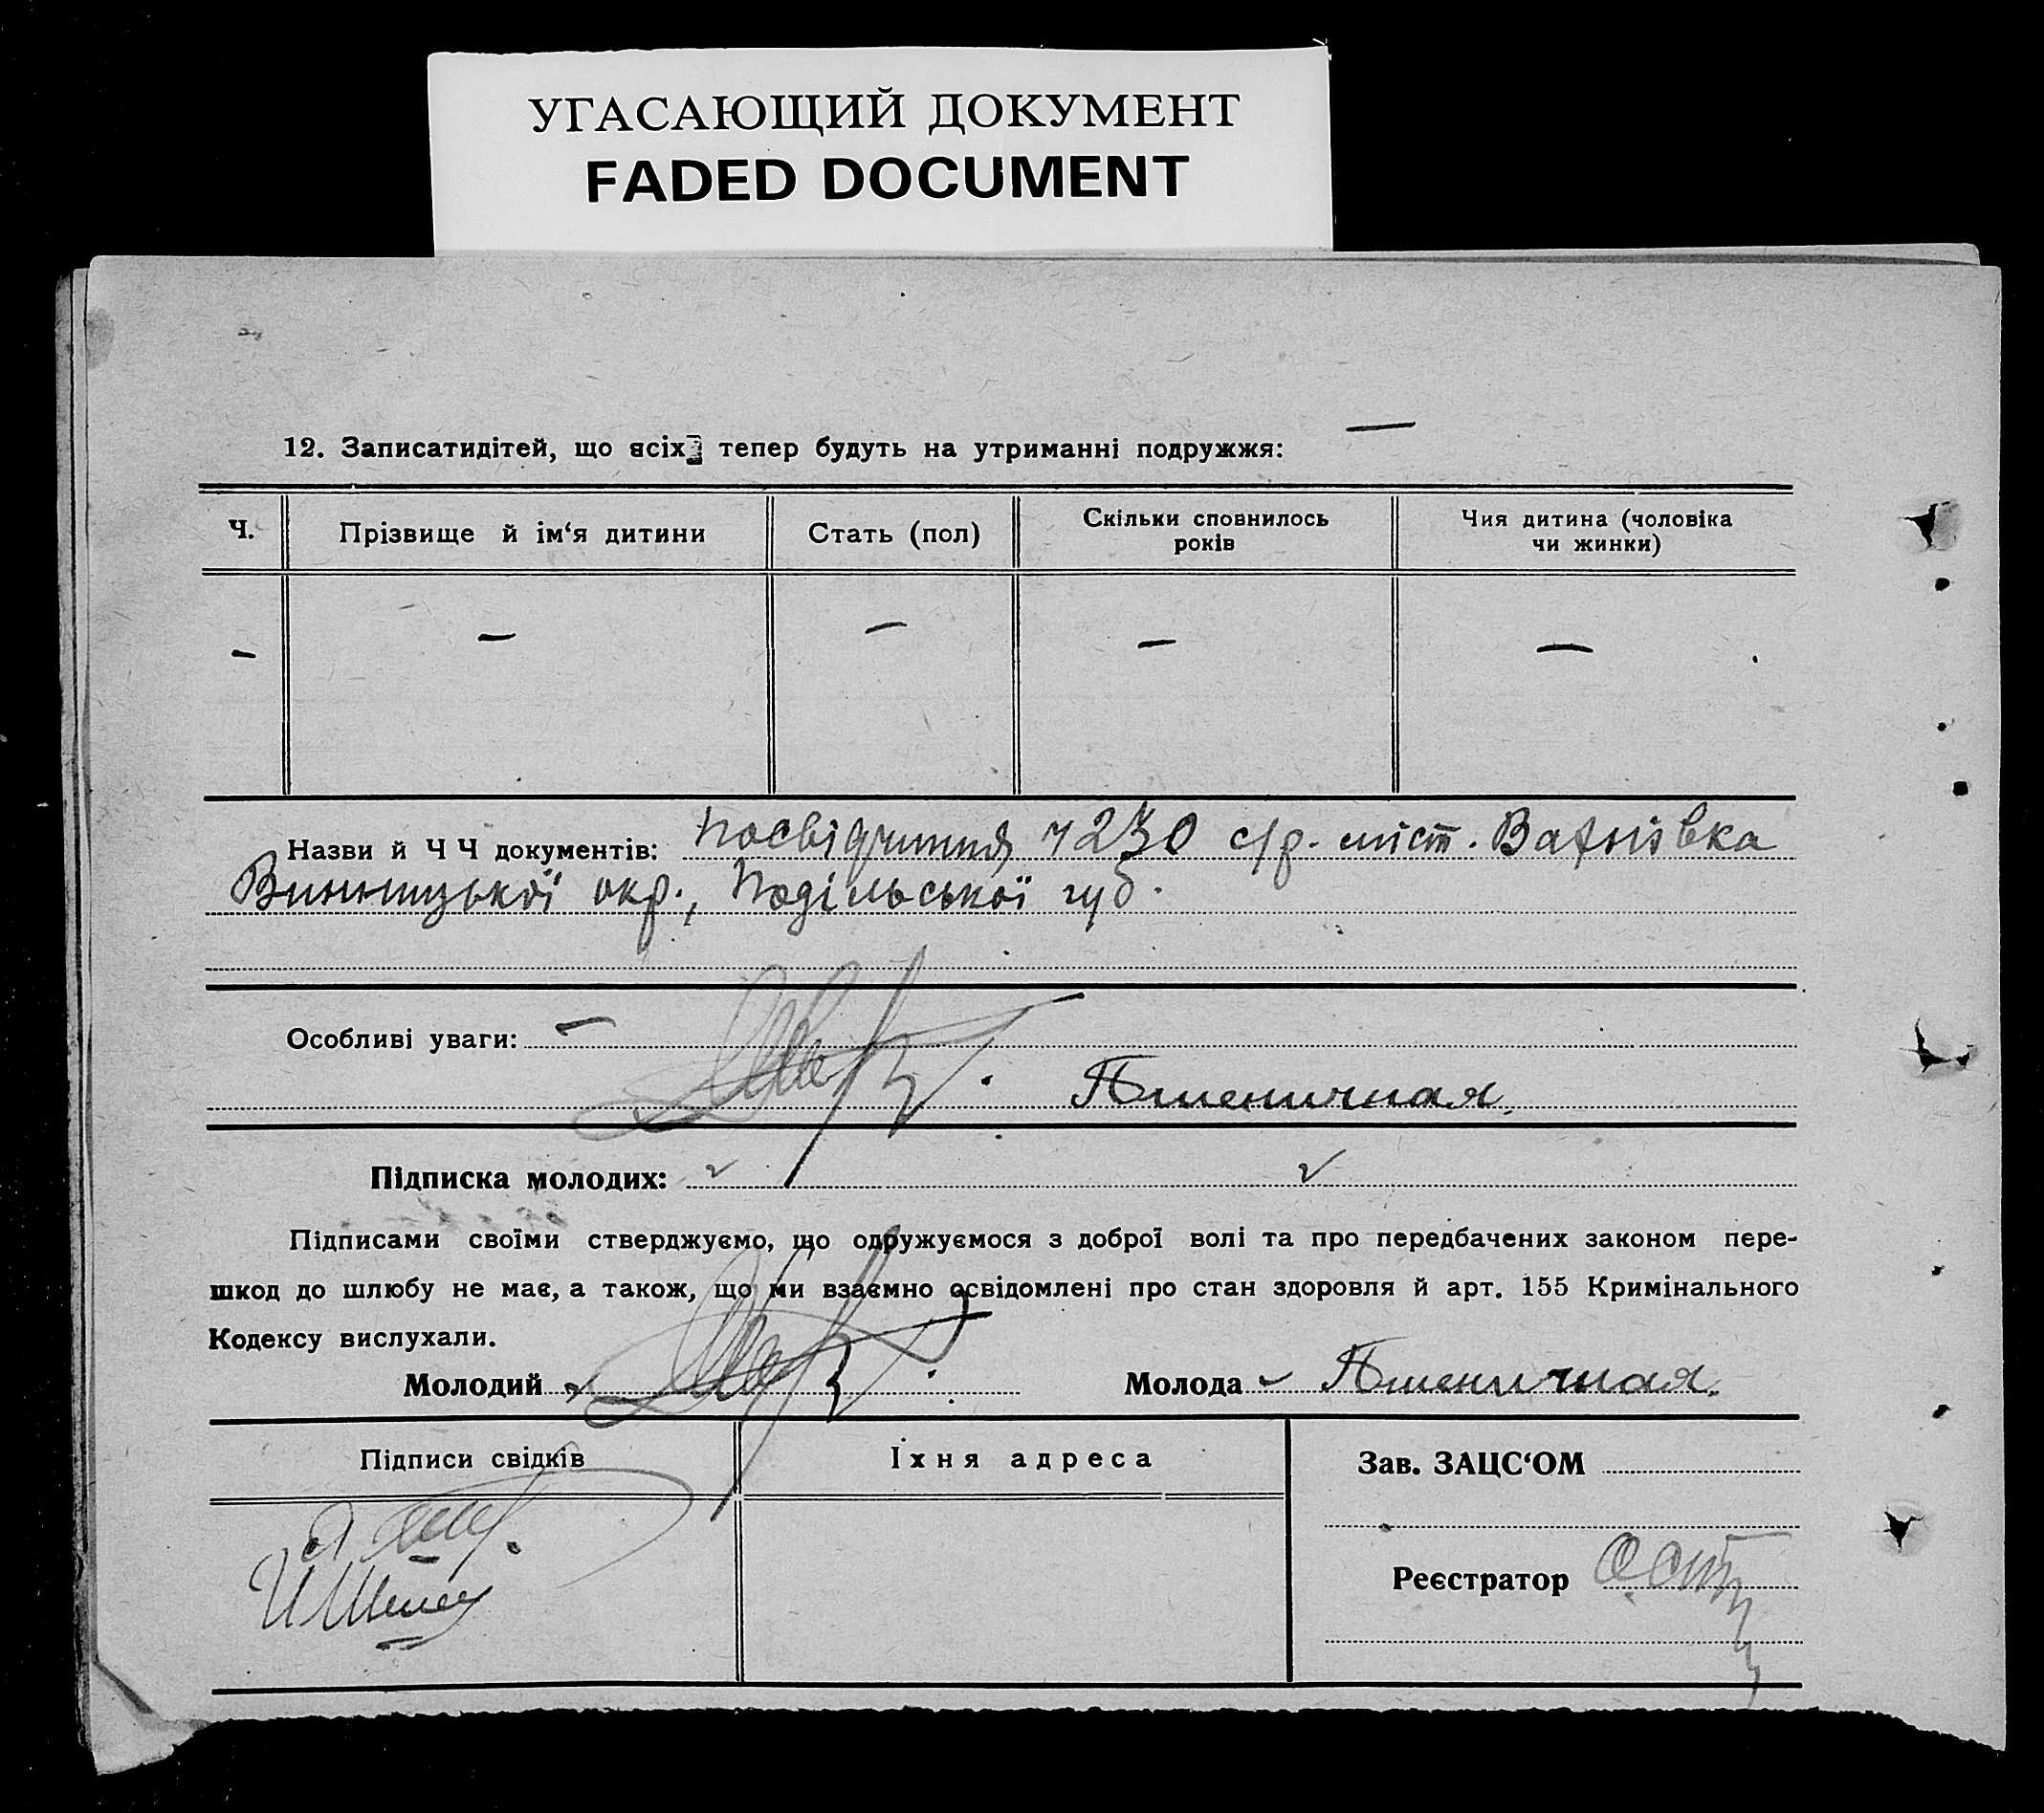 УГАСАЮЩИЙ ДОКУМЕНТ
FADED DOCUMENT
12. Записатидітей, що всіх тепер будуть на утриманні подружжя: —
Ч. Прізвище й ім‘я дитини Стать (пол) Скільки сповнилось років Чия дитина (чоловіка чи жинки)
— — — — —
Назви й Ч Ч документів: Посвідчиння ч 230 с/р. міст. Вахнівка
Винницької окр., Подільської губ.
Особливі уваги: —
Пшеничная
Підписка молодих:
Підписами своїми стверджуємо, що одружуємося з доброї волі та про передбачених законом пере-
шкод до шлюбу не має, а також, що ми взаємно освідомлені про стан здоровля й арт. 155 Кримінального
Кодексу вислухали.
Молодий Молода Пшеничная.
Підписи свідків Їхня адреса Зав. ЗАЦС‘ОМ
Реєстратор